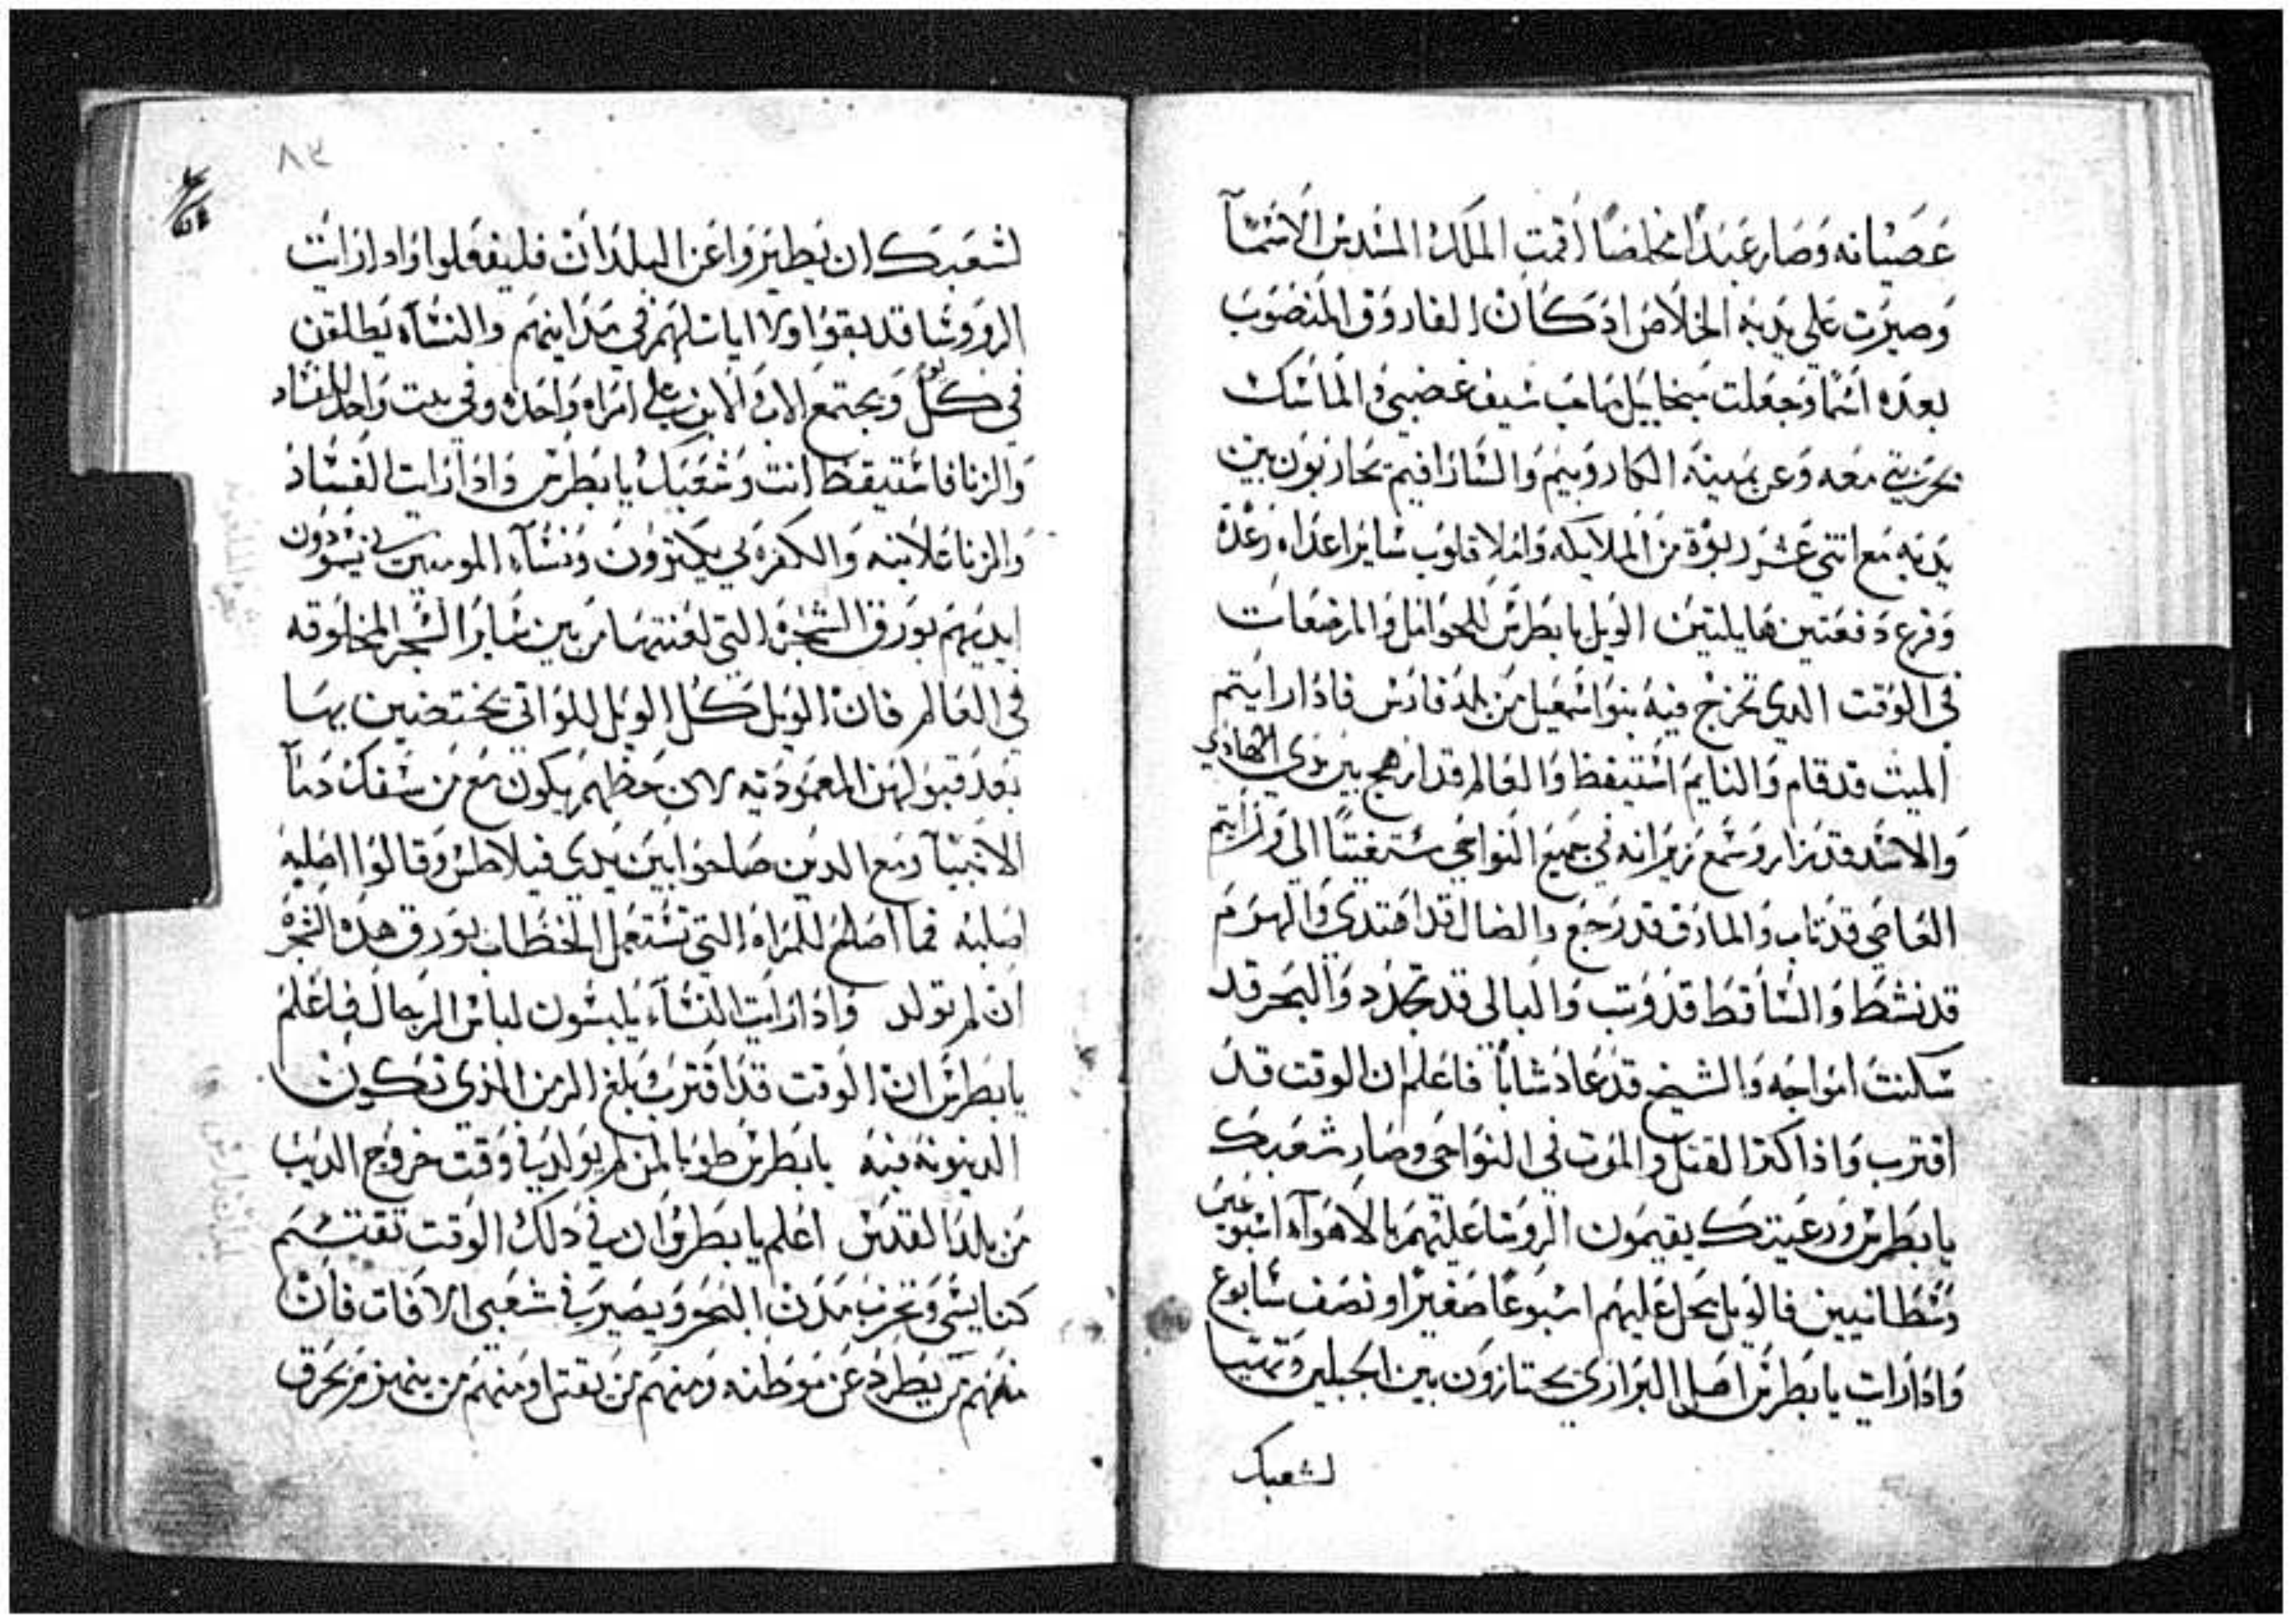 عصيانه وصار عبدا مخلصا اقمت الملك المسدس الاسما
وصيرت علي يديه الخلاص اذ كان الفاروق المنصوب
بعده اسما وجعلت ميخاييل صاحب سيف غضبي والماسك
معه وعن يمينه الكاروبيم والسارافيم يحاربون بين
يديه مع اتني عشر ربوة من الملايكه واملا قلوب ساير اعداه رعدة
وفزع دفعتين هايلتين الويل يا بطرس للحوامل والمرضعات
في الوقت الدي تخرج فيه بنوا اسمعيل من بلد فارس فادا رايتم
الميت قد قام والنايم استيقظ والعالم قد ارهج بين يدي الهادي
والاسد قد زار وسمع زيرانه في جميع النواحي مستغيتا الي ورايتم
العاصي قد تاب والمارق قد رجع والضال قد اهتدي والهرم
قد نشط والساقط قد وتب والبالي قد تجدد والبحر قد
سكنت امواجه والشيخ قد عاد شابا فاعلم ان الوقت قد
اقترب واذا كتر القتل والموت في النواحي وصار شعبك
يا بطرس ورعيتك يقيمون الروسا عليهم بالاهواء اسبوعين
وسطانيين فالويل يحل عليهم اسبوعا صغيرا او نصف سابوع
وادا رات يا بطرس اهل البراري يجتازون بين الجبلين وتهيا
لشعبك
٨٣
لشعبك ان يطيروا عن البلدان فليفعلوا وادا رات
الروسا قد بقوا ولا اياس لهم في مداينهم والنساء يطلقن
في كل يوم ويجتمع الاب والابن علي امراه واحده وفي بيت واحد للفساد
والزنا فاستيقظ انت وشعبك يا بطرس وادا رات الفساد
والزنا علانيه والكفره بي يكترون ونساء المومنين بي يسودون
ايديهم بورق الشجره التي لعنتها من بين ساير الشجر المخلوقه
في العالم فان الويل كل الويل للواتي يختضبن بها
بعد قبولهن المعموديه لان حظهم يكون مع من سفك دما
الانبيا ومع الدين صاحوا بين يدي فيلاطس وقالوا اصلبه
اصلبه فما اصلح للمراه التي تستعمل الخظاب بورق هده الشجره
ان لم تولد وادا رات النساء يلبسون لباس الرجال فاعلم
يا بطرس ان الوقت قد اقترب وبلغ الزمن الدي تكون
الدينونه فيه يا بطرس طوبا لمن لم يولد في وقت خروج الديب
من بلد القدس اعلم يا بطرس ان في دلك الوقت تقتسم
كنايسي وتخرب مدن البحر ويصير في شعبي الافات فان
منهم من يطرد عن موطنه ومنهم من يقتل ومنهم من ينهب ويحرق